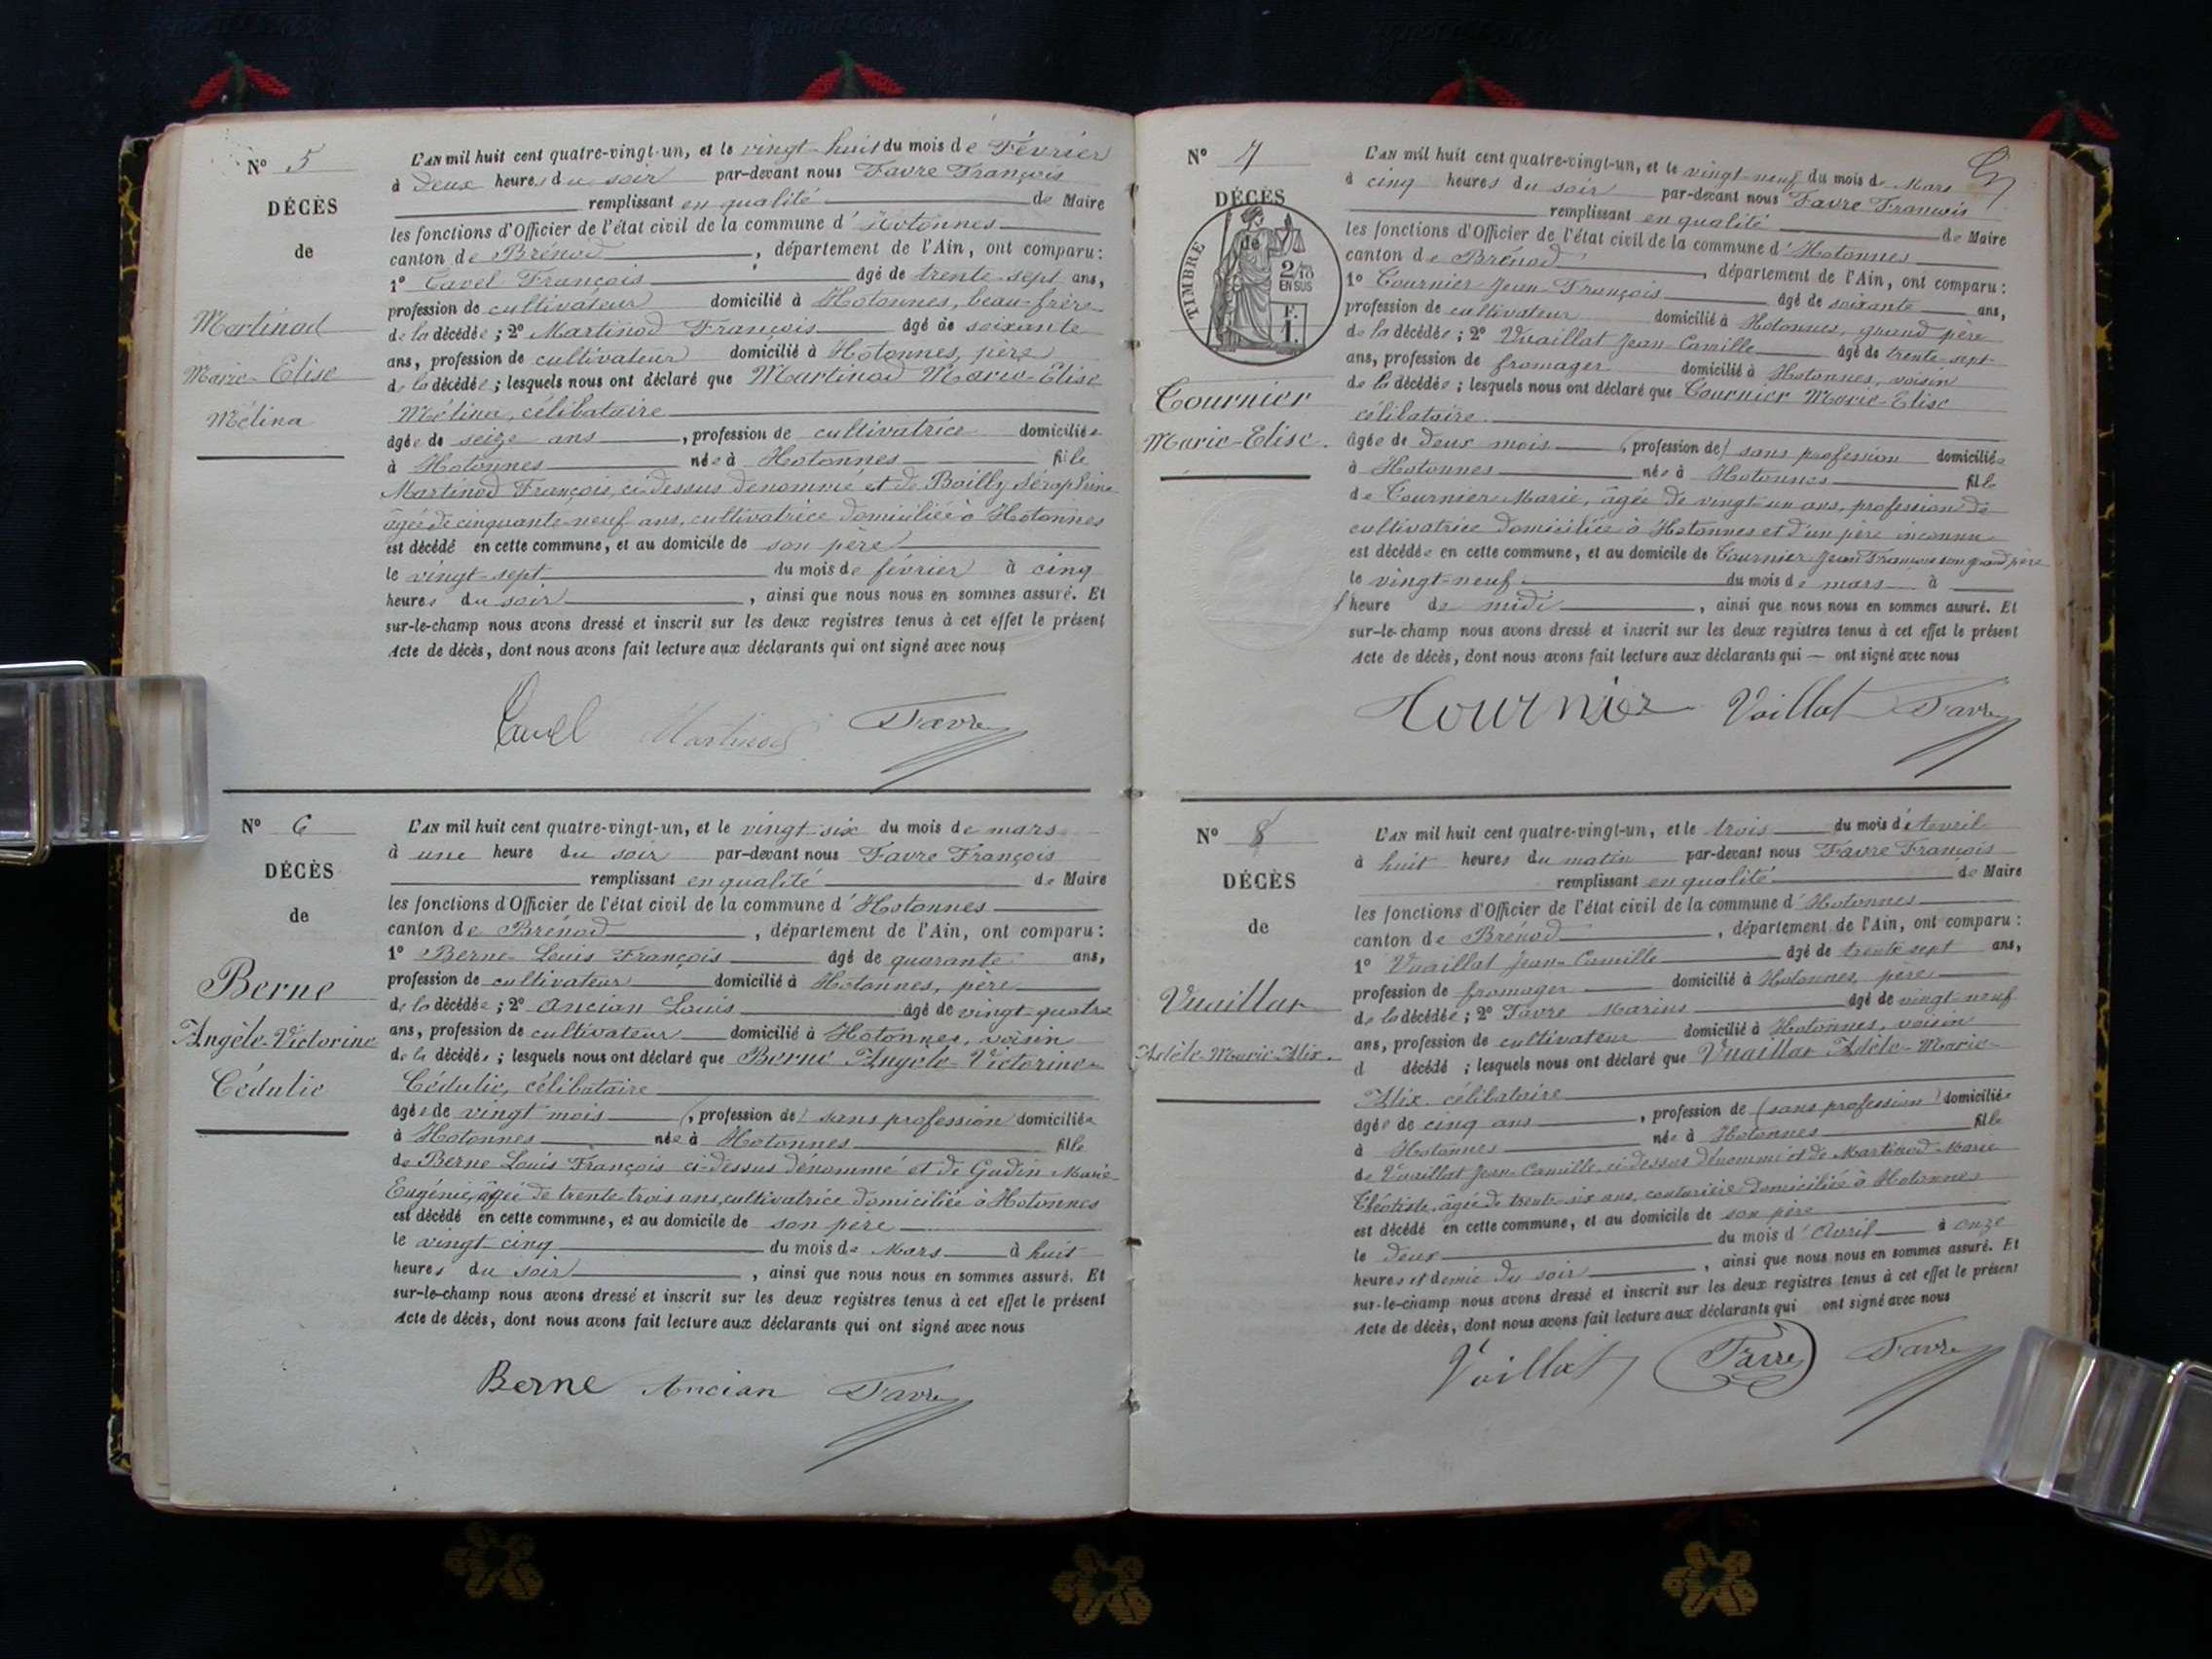 N° 5
DÉCÈS
de
Martinod
Marie-Elise
Mélina
L'AN mil huit cent quatre-vingt-un, et le vingt-huit du mois de Février
à deux heures du soir par-devant nous Favre François
remplissant en qualité de Maire
les fonctions d'Officier de l'état civil de la commune d'Hotonnes
canton de Brénod, département de l'Ain, ont comparu:
1° Cavel François âgé de trente-sept ans,
profession de cultivateur domicilié à Hotonnes, beau-frère
de la décédée; 2° Martinod François âgé de soixante
ans, profession de cultivateur domicilié à Hotonnes, père
de la décédée; lesquels nous ont déclaré que Martinod Marie-Elise
Mélina, célibataire
âgée de seize ans, profession de cultivatrice domiciliée
à Hotonnes née à Hotonnes fille
Martinod François, ci-dessus dénommé et de Bailly Séraphine
âgée de cinquante-neuf ans, cultivatrice domiciliée à Hotonnes
est décédé en cette commune, et au domicile de son père
le vingt-sept du mois de février à cinq
heures du soir, ainsi que nous nous en sommes assuré. Et
sur-le-champ nous avons dressé et inscrit sur les deux registres tenus à cet effet le présent
Acte de décès, dont nous avons fait lecture aux déclarants qui ont signé avec nous
Cavel Martinod Favre
N° 6
DÉCÈS
de
Berne
Angèle-Victorine
Cédulie
L'AN mil huit cent quatre-vingt-un, et le vingt-six du mois de mars
à une heure du soir par-devant nous Favre François
remplissant en qualité de Maire
les fonctions d'Officier de l'état civil de la commune d'Hotonnes
canton de Brénod, département de l'Ain, ont comparu:
1° Berne Louis François âgé de quarante ans,
profession de cultivateur domicilié à Hotonnes, père
de la décédée; 2° Ancian Louis âgé de vingt-quatre
ans, profession de cultivateur domicilié à Hotonnes, voisin
de la décédée; lesquels nous ont déclaré que Berne Angèle-Victorine
Cédulie, célibataire
âgée de vingt mois (, profession de) sans profession domiciliée
à Hotonnes née à Hotonnes fille
de Berne Louis François ci-dessus dénommé et de Gudin Marie-
Eugénie, âgée de trente-trois ans, cultivatrice domiciliée à Hotonnes
est décédé en cette commune, et au domicile de son père
le vingt-cinq du mois de Mars à huit
heures du soir, ainsi que nous nous en sommes assuré. Et
sur-le-champ nous avons dressé et inscrit sur les deux registres tenus à cet effet le présent
Acte de décès, dont nous avons fait lecture aux déclarants qui ont signé avec nous
Berne Ancian Favre
N° 7
DÉCÈS
de
TIMBRE
2/10
EN SUS
F.
1.
Tournier
Marie-Elise.
L'AN mil huit cent quatre-vingt-un, et le vingt-neuf du mois de Mars
à cinq heures du soir par-devant nous Favre François
remplissant en qualité de Maire
les fonctions d'Officier de l'état civil de la commune d'Hotonnes
canton de Brénod, département de l'Ain, ont comparu:
1° Tournier Jean François âgé de soixante ans,
profession de cultivateur domicilié à Hotonnes, grand père
de la décédée; 2° Vuaillat Jean-Camille âgé de trente-sept
ans, profession de fromager domicilié à Hotonnes, voisin
de la décédée; lesquels nous ont déclaré que Tournier Marie-Elise
célibataire
âgée de deux mois (, profession de) sans profession domiciliée
à Hotonnes née à Hotonnes fille
de Tournier Marie, âgée de vingt-un ans, profession de
cultivatrice domiciliée à Hotonnes et d'un père inconnu
est décédée en cette commune, et au domicile de Tournier Jean François son grand père
le vingt-neuf du mois de mars à
l'heure de midi, ainsi que nous nous en sommes assuré. Et
sur-le-champ nous avons dressé et inscrit sur les deux registres tenus à cet effet le présent
Acte de décès, dont nous avons fait lecture aux déclarants qui — ont signé avec nous
Tournier Voillat Favre
N° 8
DÉCÈS
de
Vuaillat
Adèle-Marie-Alix.
L'AN mil huit cent quatre-vingt-un, et le trois du mois d'Avril
à huit heures du matin par-devant nous Favre François
remplissant en qualité de Maire
les fonctions d'Officier de l'état civil de la commune d'Hotonnes
canton de Brénod, département de l'Ain, ont comparu:
1° Vuaillat Jean-Camille âgé de trente sept ans,
profession de fromager domicilié à Hotonnes, père
de la décédée; 2° Favre Marius âgé de vingt-neuf
ans, profession de cultivateur domicilié à Hotonnes, voisin
d décédé; lesquels nous ont déclaré que Vuaillat Adèle-Marie-
Alix. célibataire
âgée de cinq ans, profession de (sans profession) domiciliée
à Hotonnes née à Hotonnes fille
de Vuaillat Jean-Camille, ci-dessus dénommé et de Martinod Marie
Théotiste, âgée de trente-six ans, couturière domiciliée à Hotonnes
est décédé en cette commune, et au domicile de son père
le deux du mois d'Avril à onze
heures et demie du soir, ainsi que nous nous en sommes assuré. Et
sur-le-champ nous avons dressé et inscrit sur les deux registres tenus à cet effet le présent
Acte de décès, dont nous avons fait lecture aux déclarants qui ont signé avec nous
Voillat Favre Favre